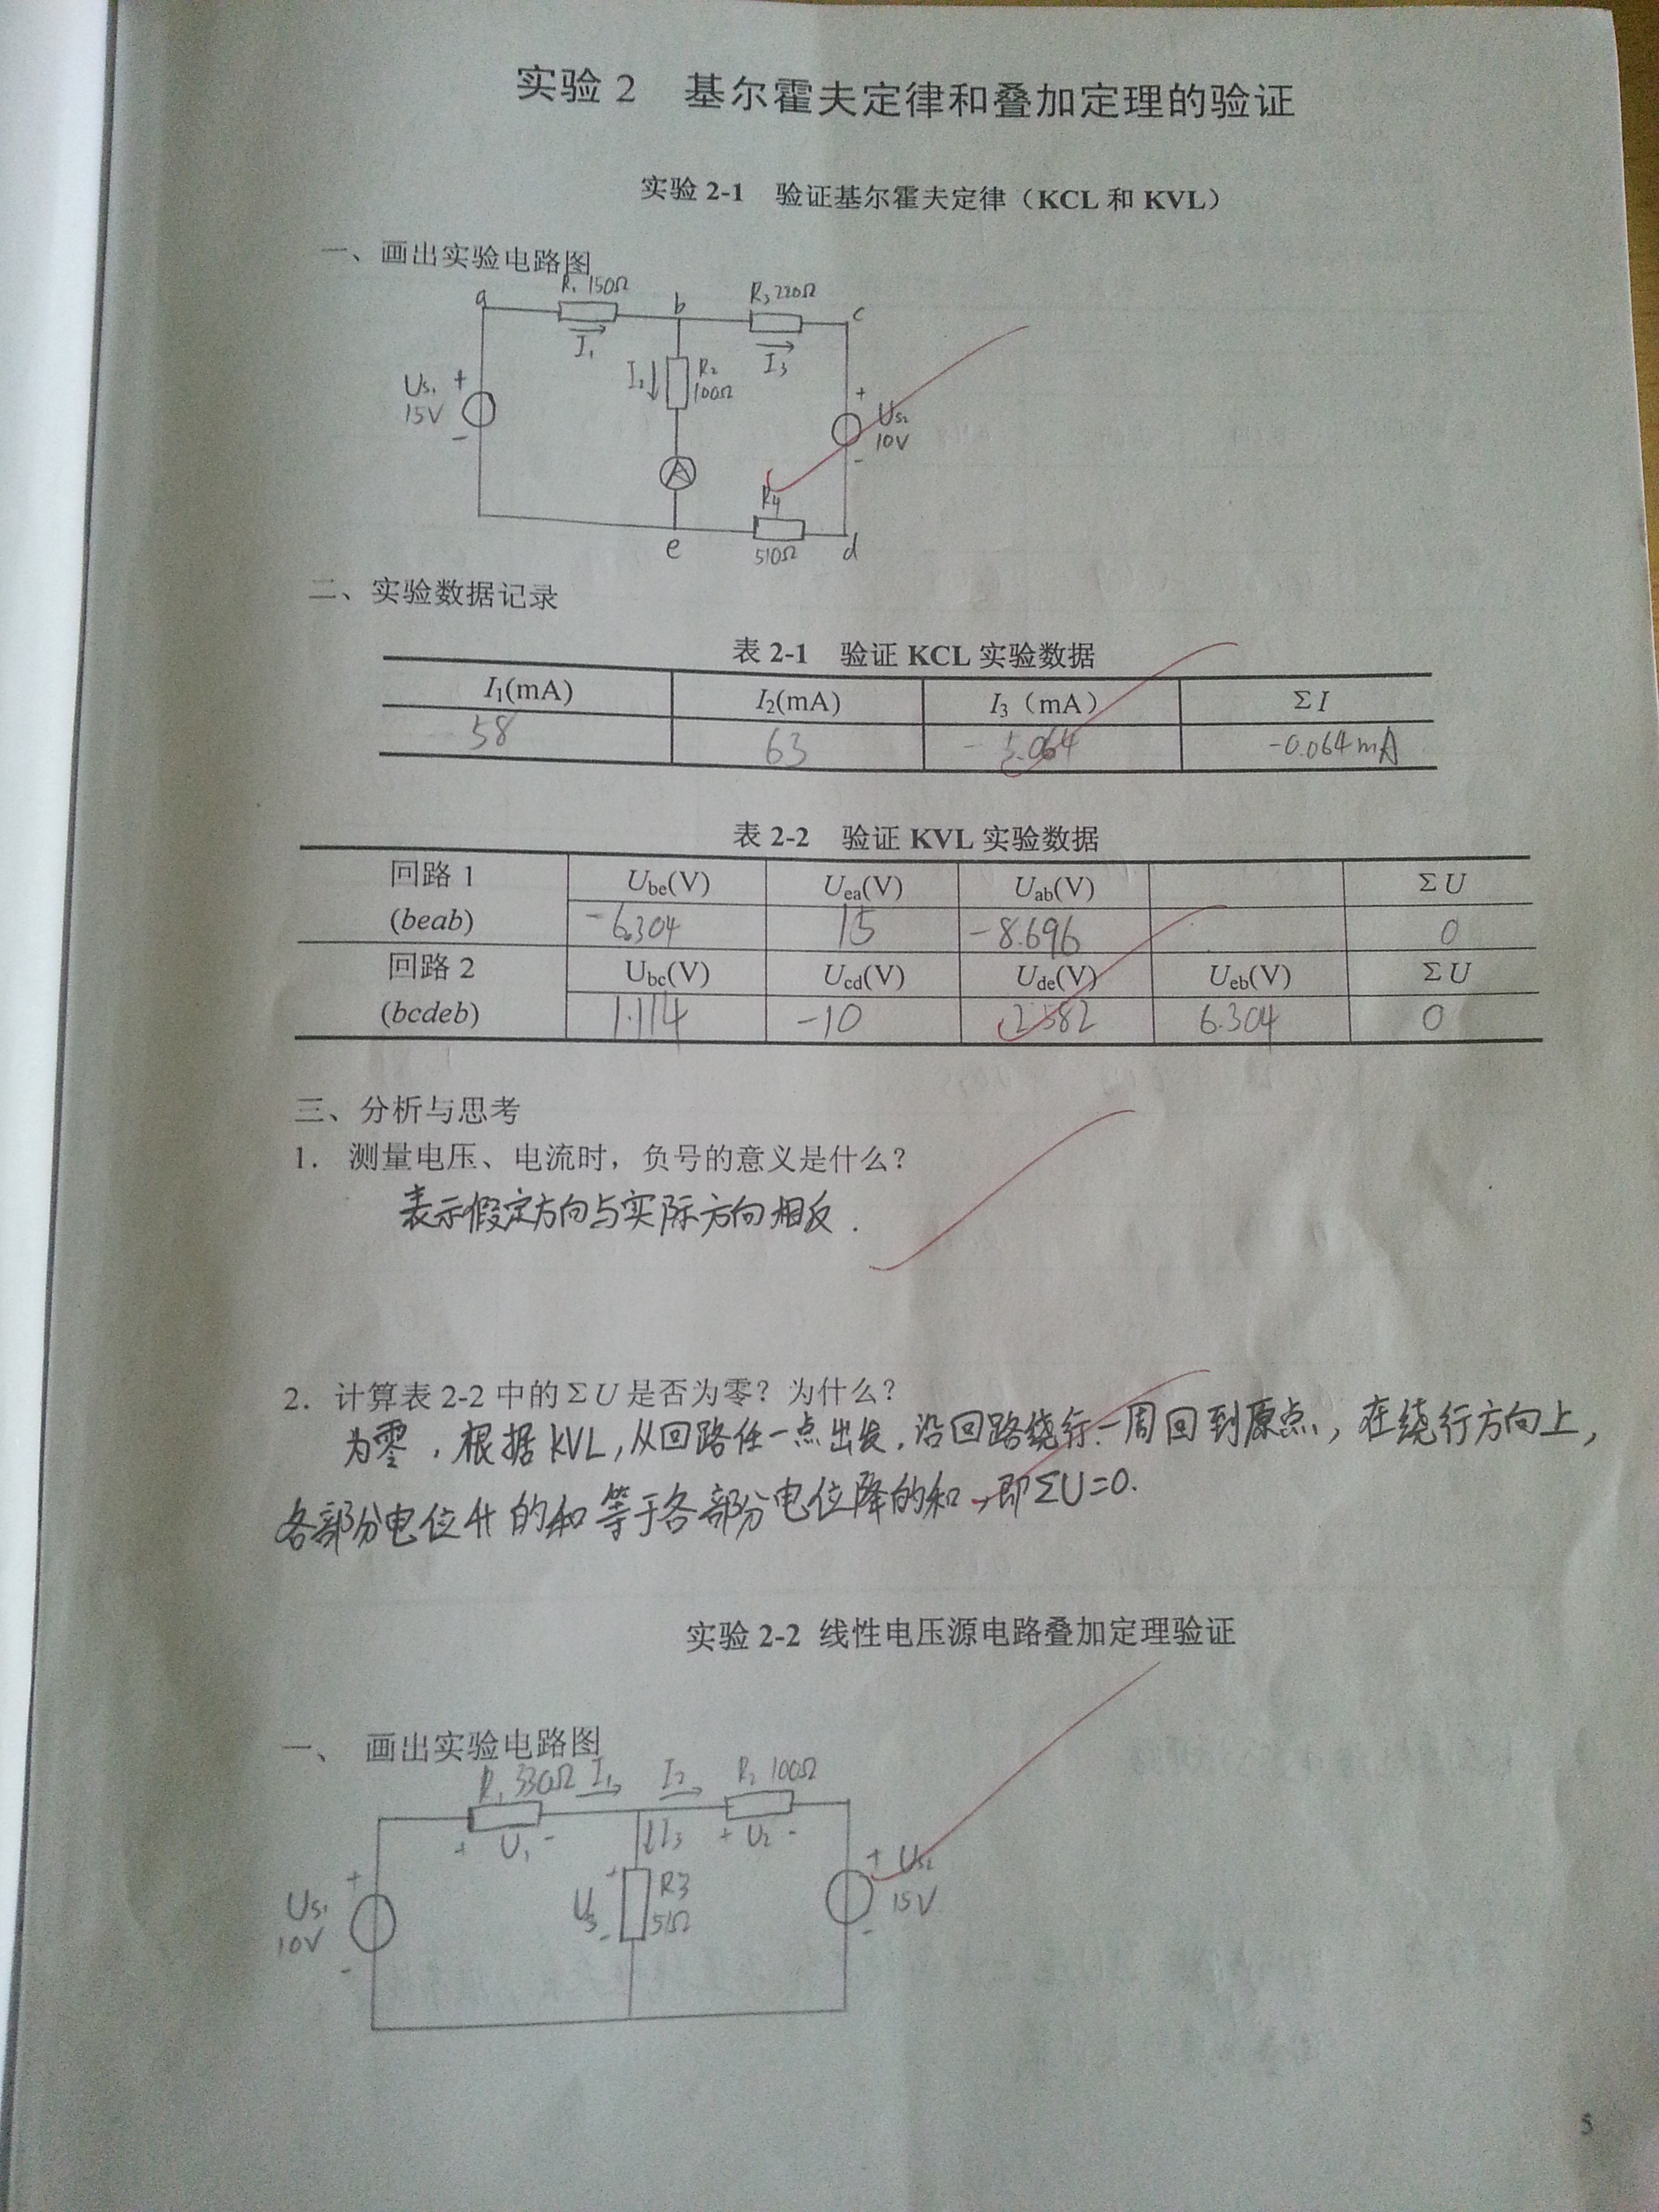 实验 2 基尔霍夫定律和叠加定理的验证
实验 2-1 验证基尔霍夫定律（KCL 和 KVL）
一、画出实验电路图
a R₁ 150Ω b R₃ 220Ω c
I₁ I₂ R₂ 100Ω I₃
Us₁ 15V + -
+ Us₂ 10V -
A
R₄
e 510Ω d
二、实验数据记录
表 2-1 验证 KCL 实验数据
I₁(mA) I₂(mA) I₃（mA） Σ I
58 63 -5.064 -0.064mA
表 2-2 验证 KVL 实验数据
回路 1 Ube(V) Uea(V) Uab(V) Σ U
(beab) -6.304 15 -8.696 0
回路 2 Ubc(V) Ucd(V) Ude(V) Ueb(V) Σ U
(bcdeb) 1.114 -10 2.582 6.304 0
三、分析与思考
1. 测量电压、电流时，负号的意义是什么？
表示假定方向与实际方向相反.
2. 计算表 2-2 中的 Σ U 是否为零？为什么？
为零，根据KVL,从回路任一点出发,沿回路绕行一周回到原点,在绕行方向上,
各部分电位升的和等于各部分电位降的和,即ΣU=0.
实验 2-2 线性电压源电路叠加定理验证
一、 画出实验电路图
R₁ 330Ω I₁ I₂ R₂ 100Ω
+ U₁ - I₃ + U₂ -
Us₁ 10V + -
+ U₃ - R3 51Ω
+ Us₂ 15V -
5